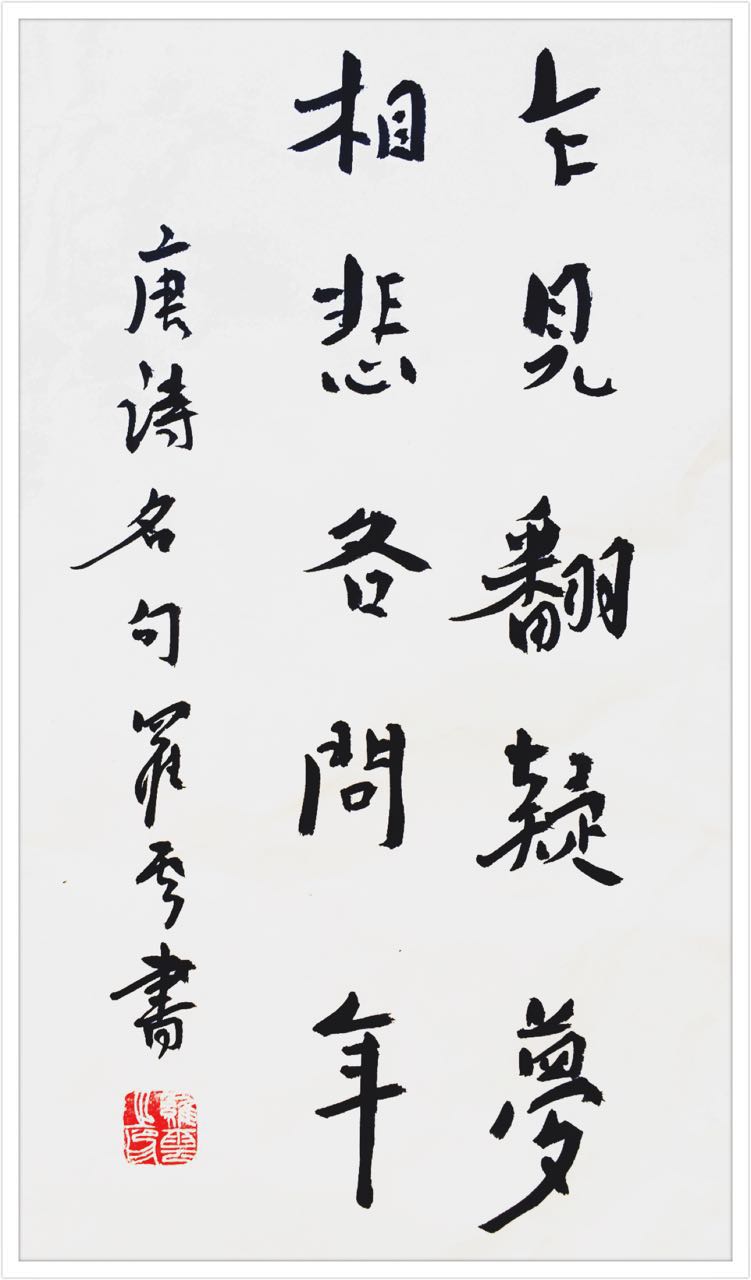 乍見翻疑夢
相悲各問年
唐詩名句羅雲書
羅雲之印